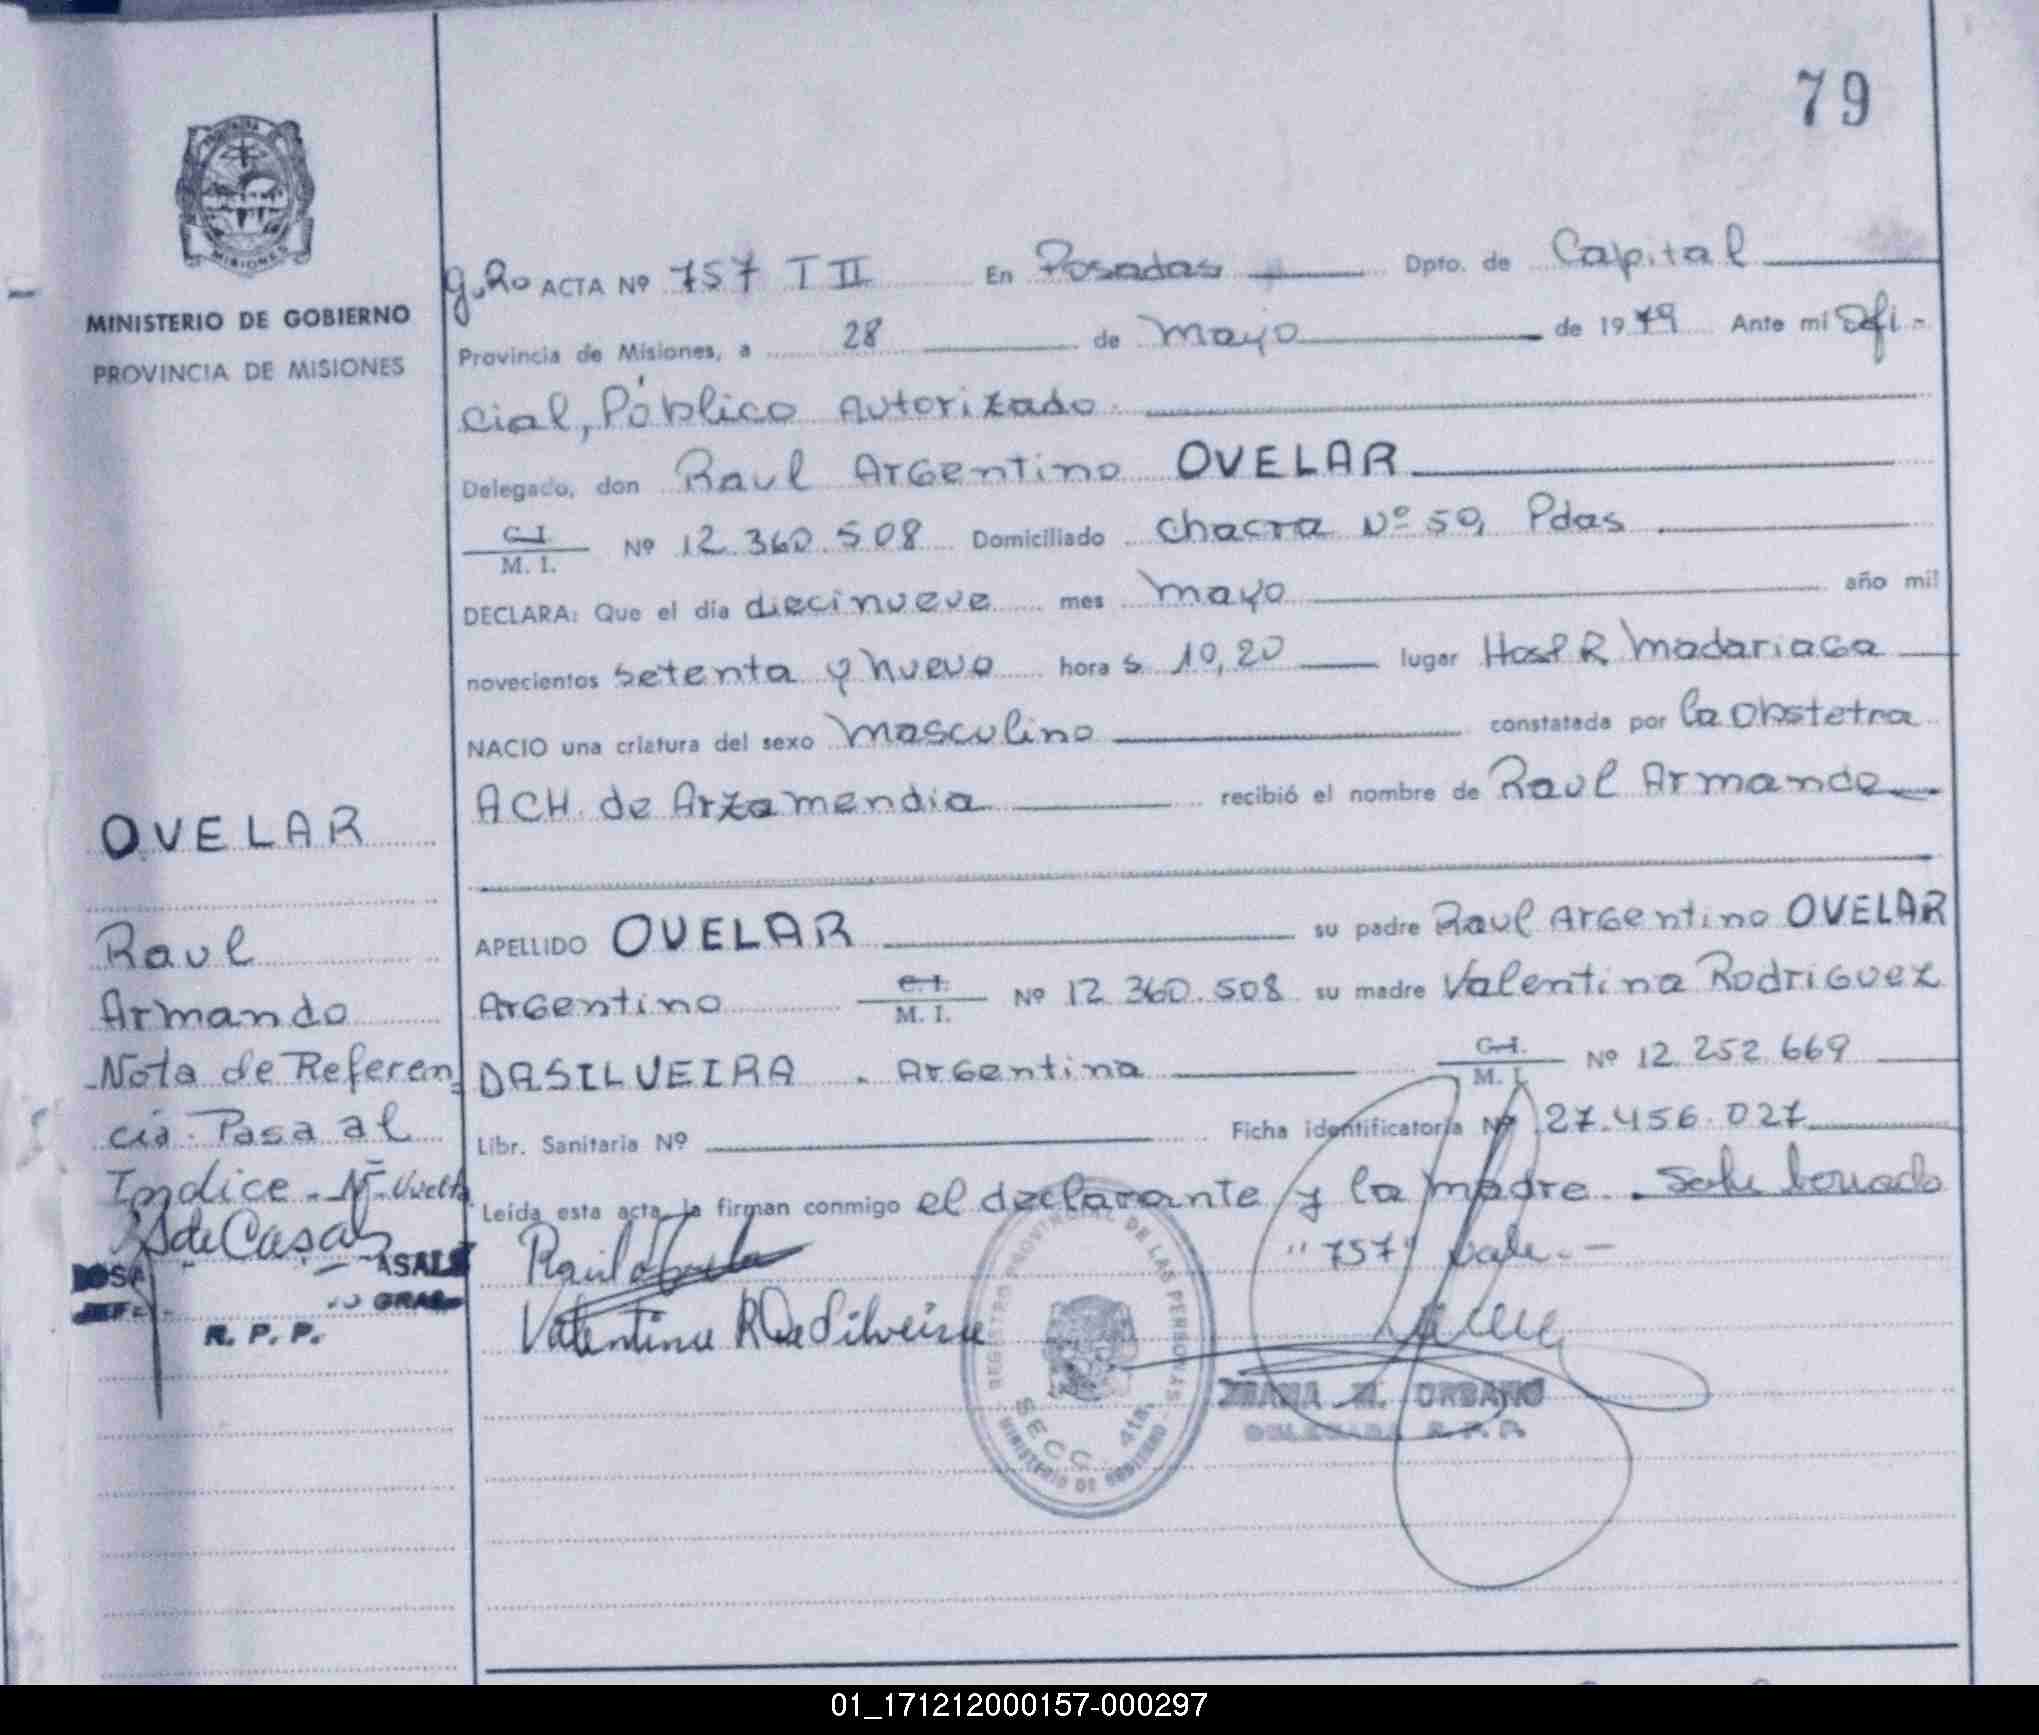 79
PROVINCIA
MISIONES
MINISTERIO DE GOBIERNO
PROVINCIA DE MISIONES
OVELAR
Raul
Armando
Nota de Referen
cia. Pasa al
Indice. Vuelta
de Casals
ASALS
GRAL
R. P. P.
ACTA Nº 757 T II En Posadas Dpto. de Capital
Provincia de Misiones, a 28 de mayo de 1979 Ante mi Ofi-
cial, Público Autorizado
Delegado, don Raul Argentino OVELAR
C.I. / M. I. Nº 12.360.508 Domiciliado Chacra Nº 50, Pdas
DECLARA: Que el día diecinueve mes mayo año mil
novecientos setenta y nueve hora s 10,20 lugar Hosp R Madariaga
NACIO una criatura del sexo masculino constatada por la Obstetra
ACH. de Arzamendia recibió el nombre de Raul Armando
APELLIDO OVELAR su padre Raul Argentino OVELAR
Argentino C.I. / M. I. Nº 12.360.508 su madre Valentina Rodriguez
DASILVEIRA. Argentina C.I. / M. I. Nº 12.252.669
Libr. Sanitaria Nº Ficha identificatoria Nº 27.456.027
Leída esta acta, la firman conmigo el declarante y la madre. Sobre borrado
"757" Vale.-
Valentina R Da Silveira
REGISTRO PROVINCIAL DE LAS PERSONAS
SECC. 4ta.
MINISTERIO DE GOBIERNO
M. URBANO
DELEGADA R.P.P.
01_171212000157-000297